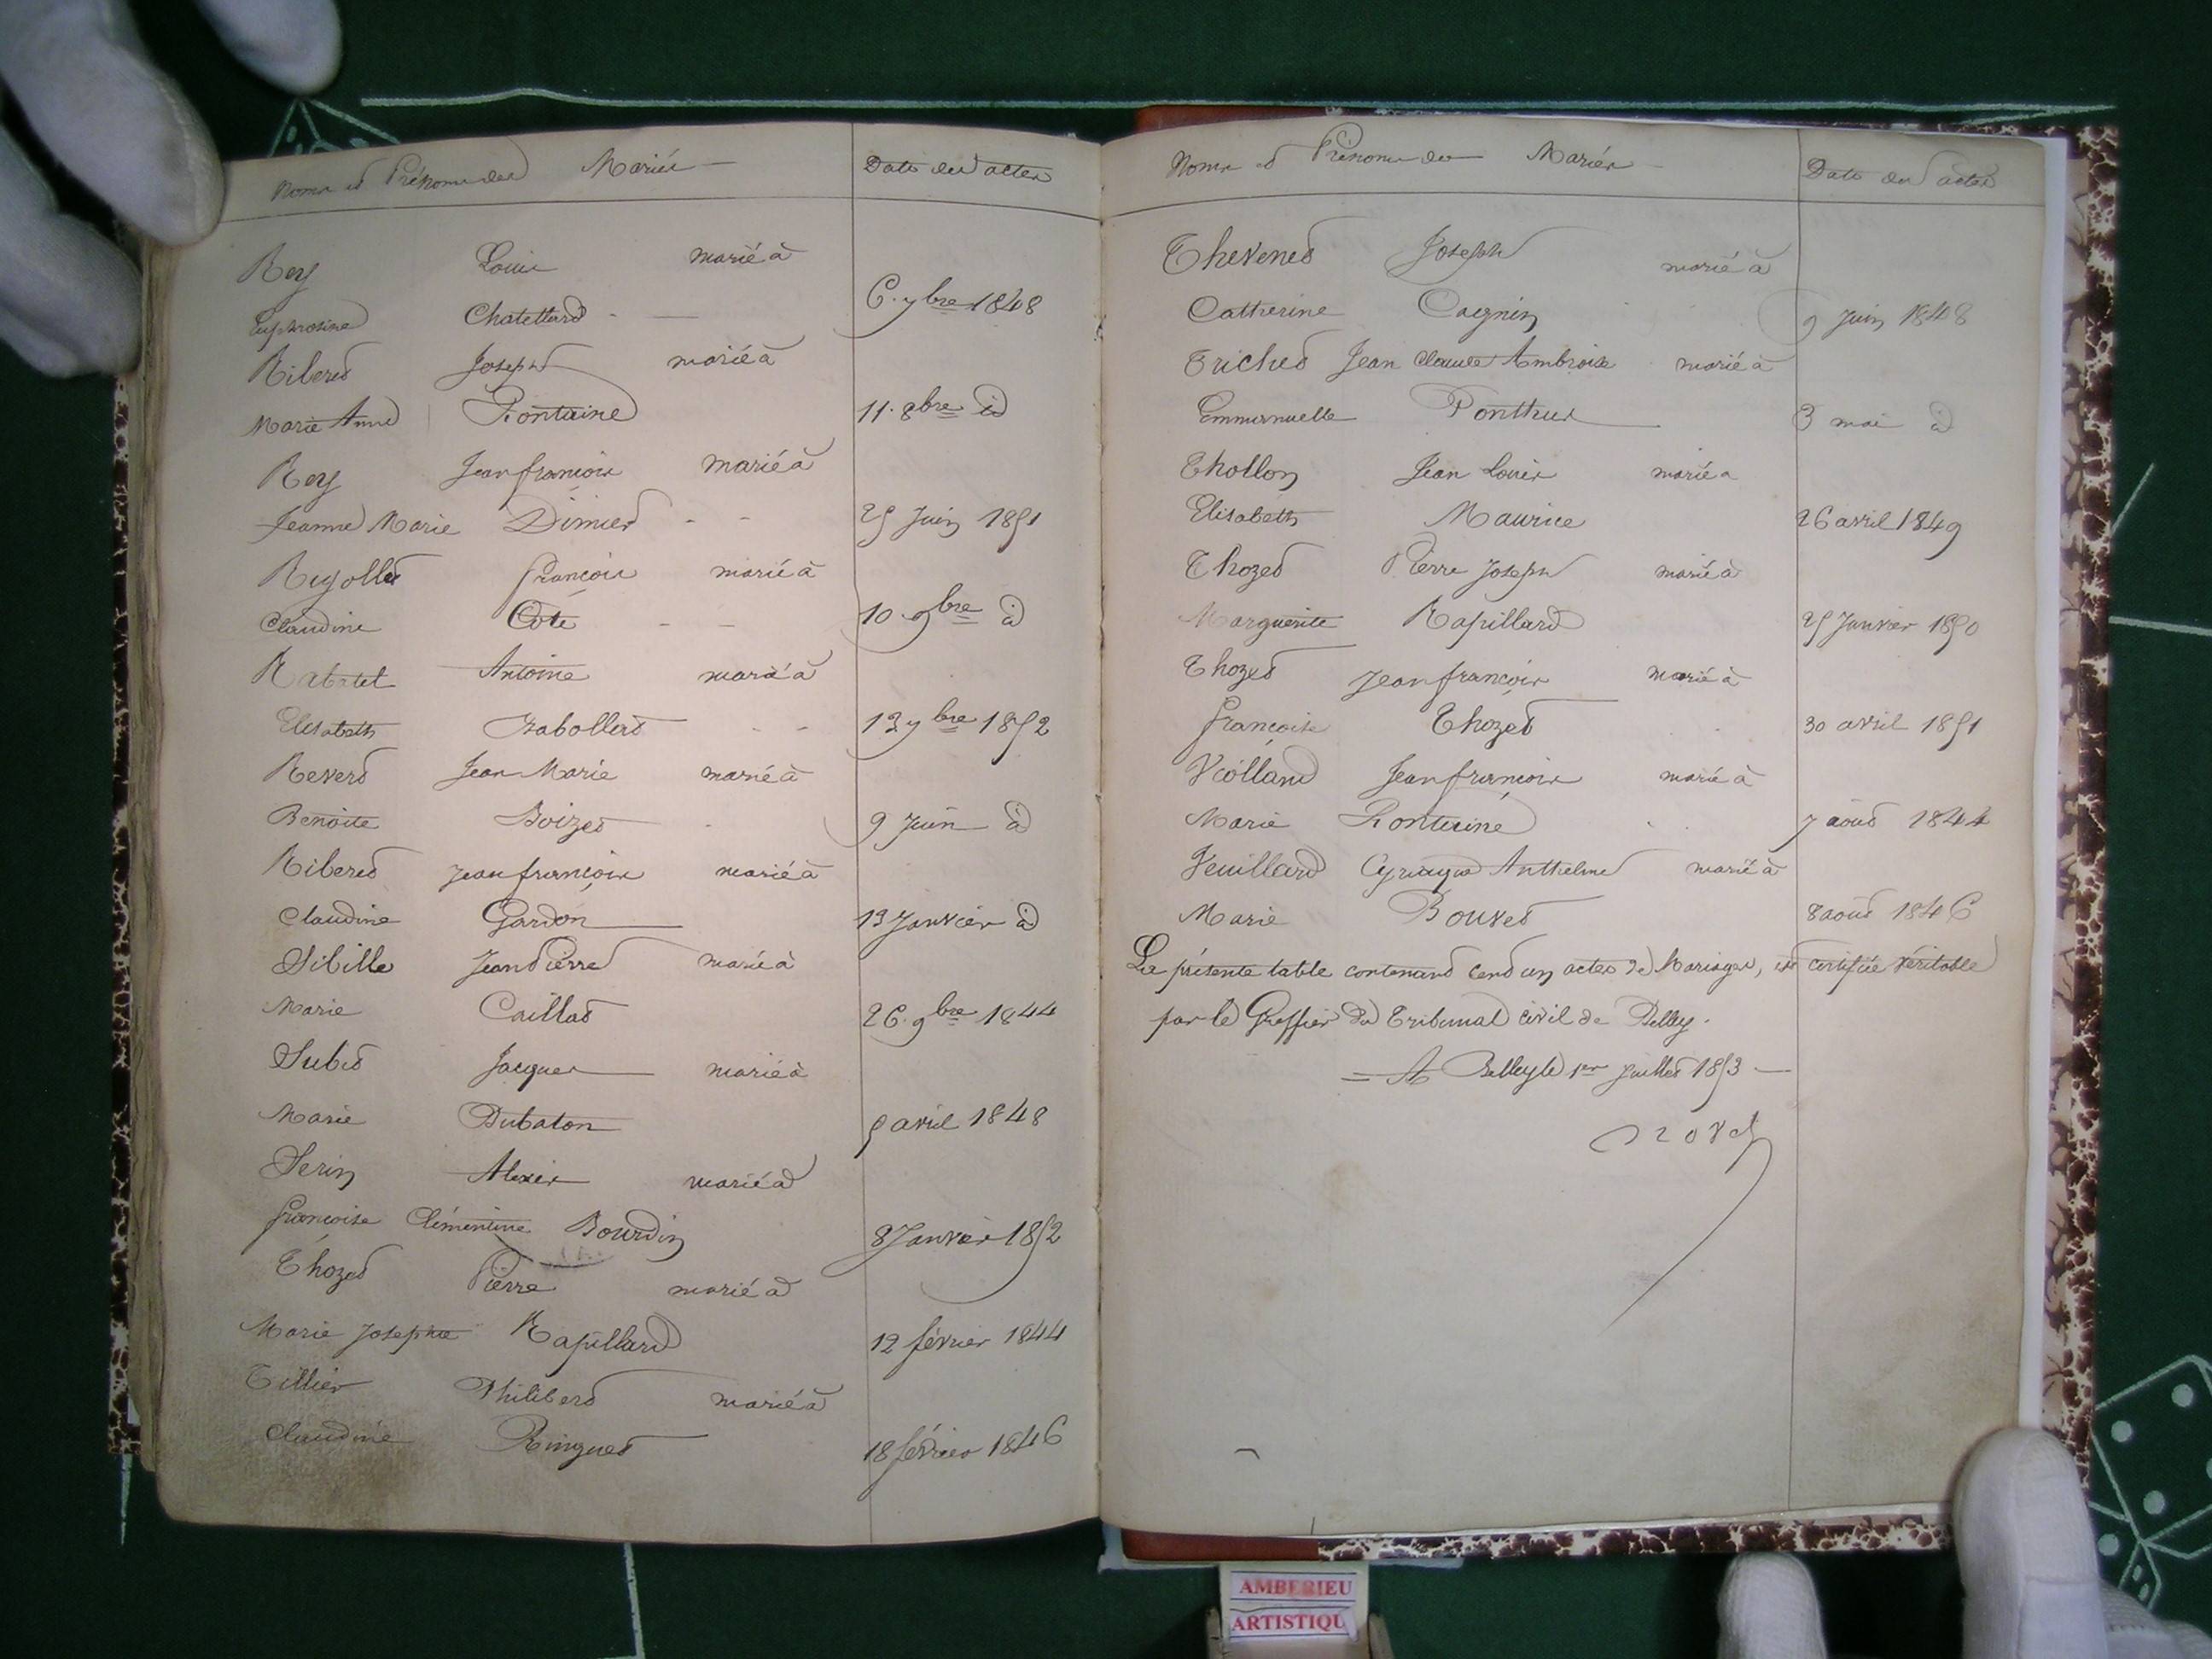 Noms et Prénoms des Mariés
Date des actes
Rey Louis marié à
Euphrosine Chatellard 6. 7bre 1848
Riberet Joseph marié à
Marie Anne Fontaine 11. 8bre id
Rey Jean françois marié à
Jeanne Marie Dimiet 25 Juin 1851
Rigollet françois marié à
Claudine Côte 10. 9bre id
Rabatel Antoine marié à
Elisabeth Babollet 13 7bre 1852
Revert Jean Marie marié à
Benoite Boizet 9 Juin id
Riberet Jean françois marié à
Claudine Gardon 13 Janvier id
Sibille Jean Pierre marié à
Marie Caillat 26. 9bre 1844
Subit Jacques marié à
Marie Dubaton 5 avril 1848
Serin Alexis marié à
françoise Clémentine Bourdin 8 Janvier 1852
Thozet Pierre marié à
Marie Josephte Rapillard 12 février 1844
Tillier Philibert marié à
Claudine Ringuet 18 février 1846
Noms et Prénoms des Mariés
Date des actes
Thevenet Joseph marié à
Catherine Cagnin 9 Juin 1848
Trichet Jean Claude Ambroise marié à
Emmanuelle Ponthus 3 mai id
Thollon Jean Louis marié à
Elisabeth Maurice 26 avril 1849
Thozet Pierre Joseph marié à
Marguerite Rapillard 25 Janvier 1850
Thozet Jean françois marié à
françoise Thozet 30 avril 1851
Violland Jean françois marié à
Marie Fontaine 7 aout 1844
Veuillard Cyriaque Anthelme marié à
Marie Bouvet 8 aout 1846
La présente table contenant cent un actes de Mariages, est certifiée véritable
par le Greffier du Tribunal civil de Belley.
A Belley le 1er Juillet 1853
AMBERIEU
ARTISTIQU